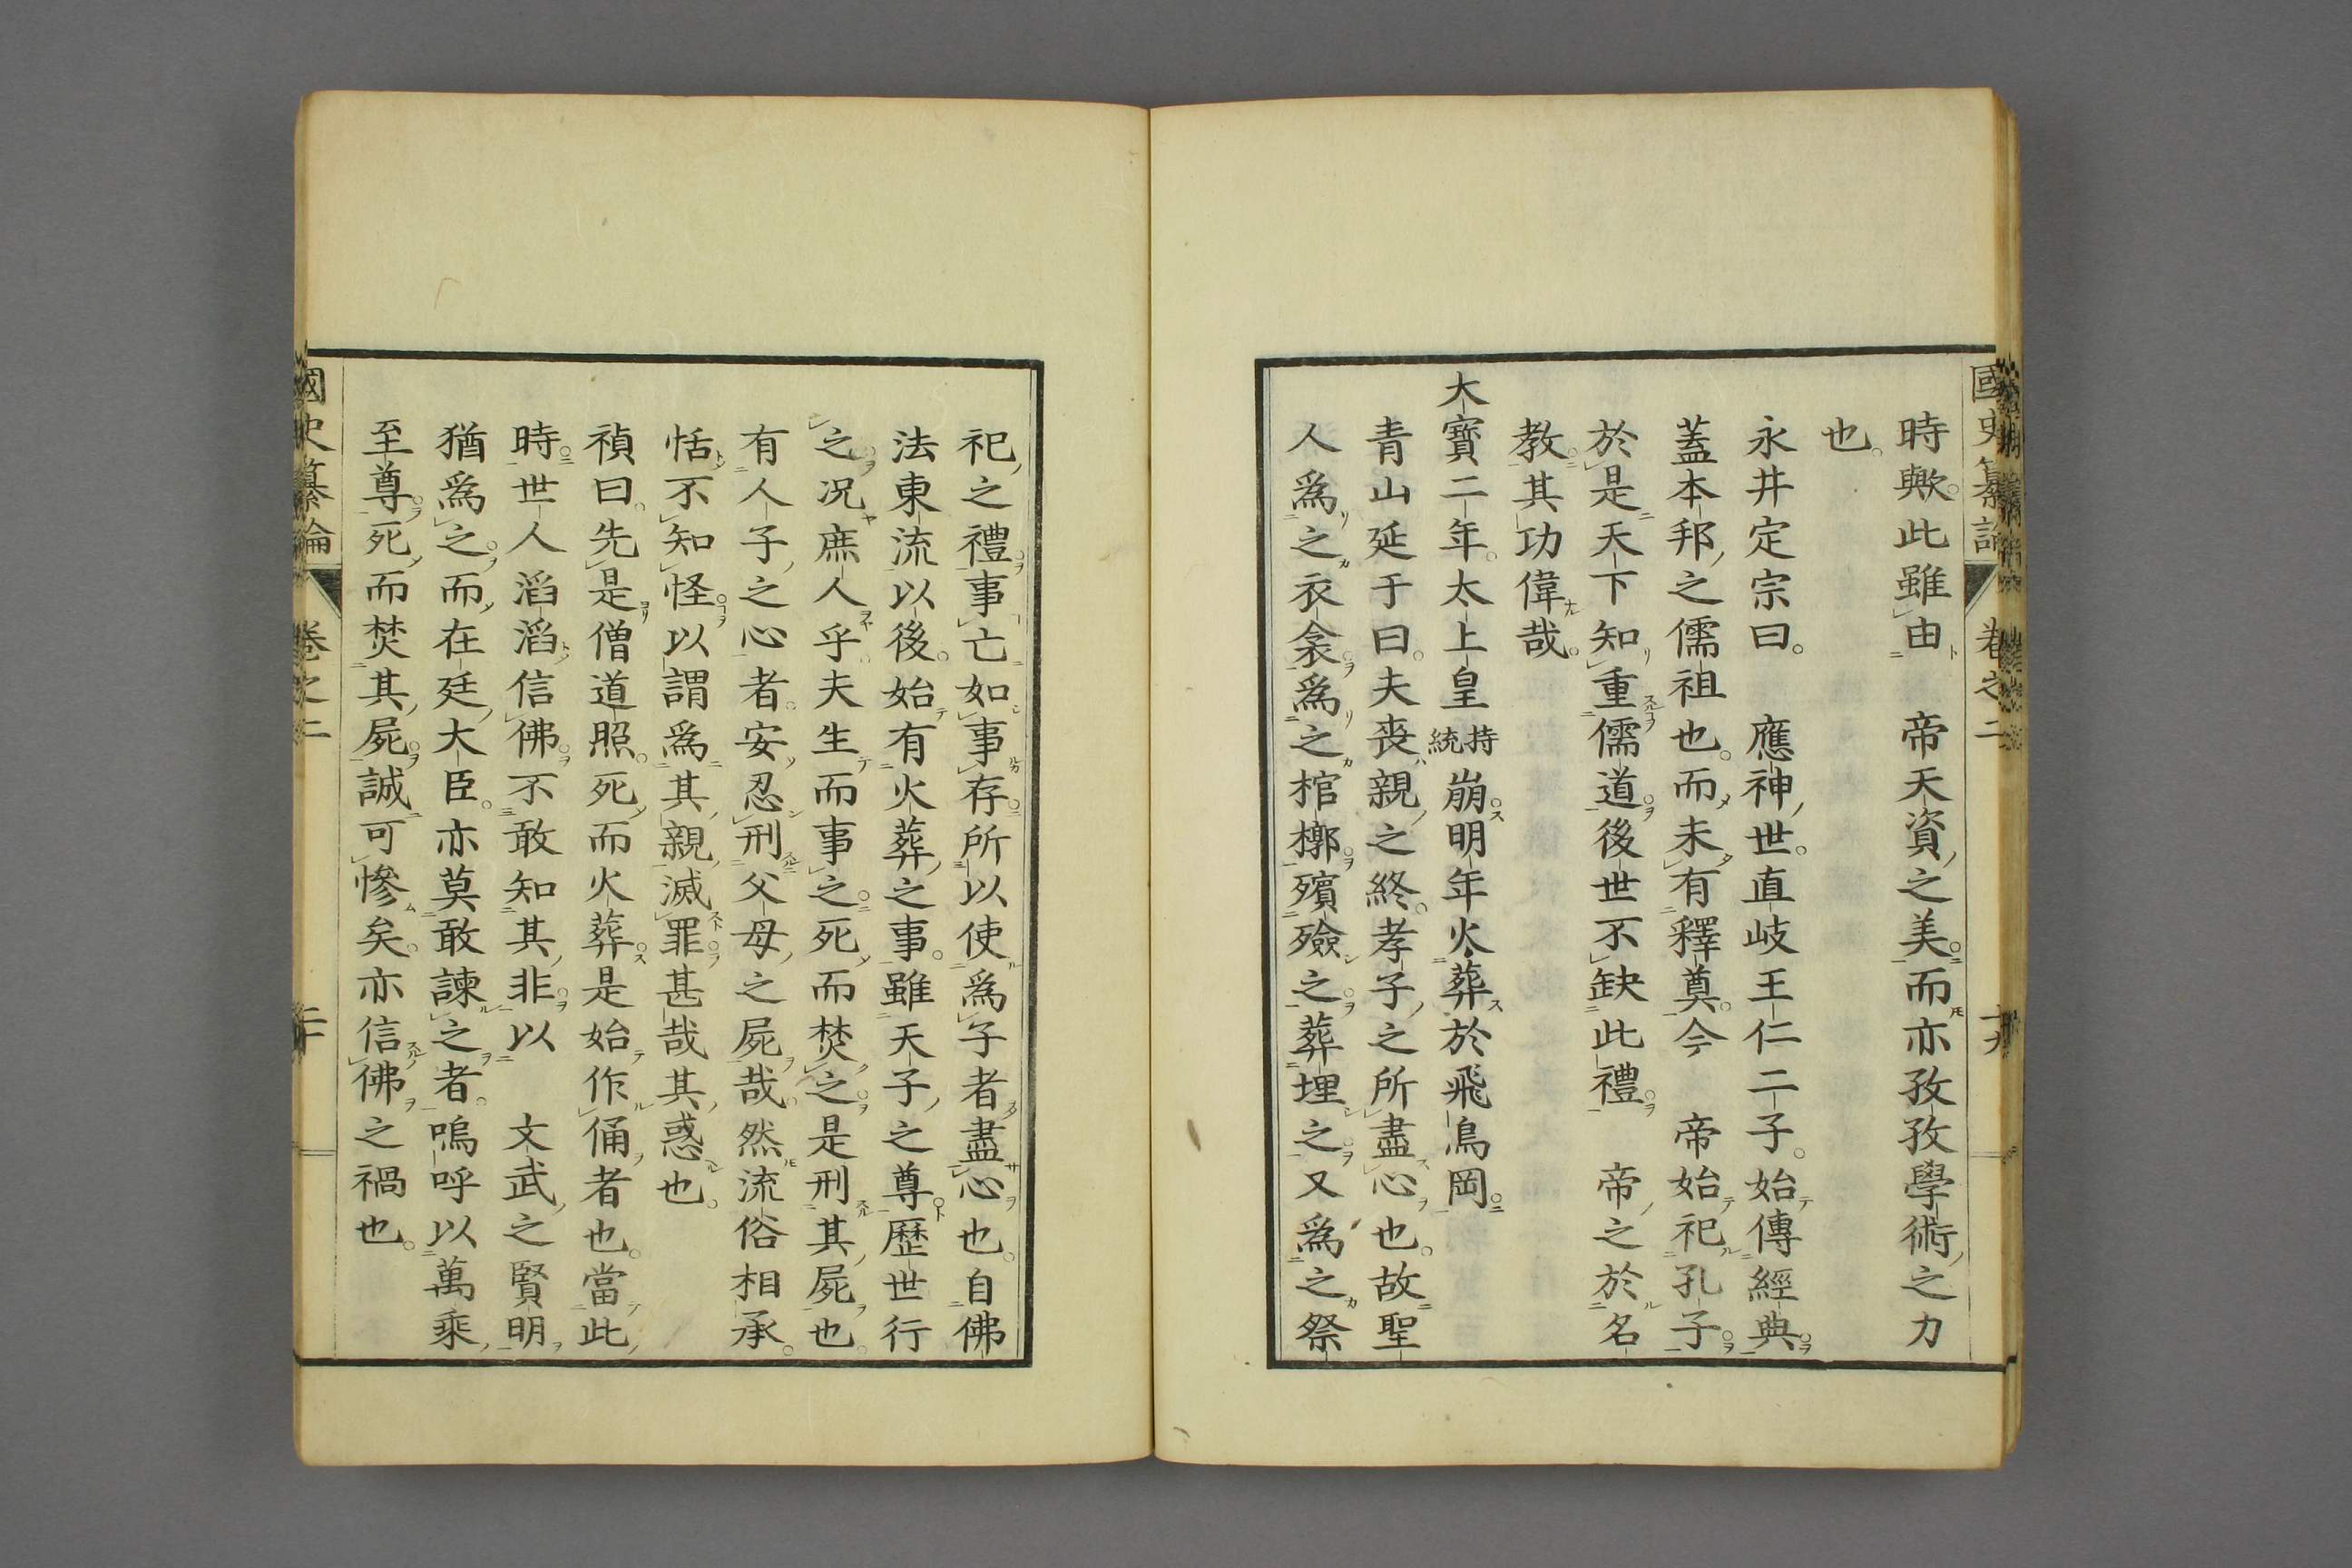 國史纂論 卷之二 十九
時歟。此雖由 帝天資之美。而亦孜孜學術之力
也。
永井定宗曰。 應神世。直岐王仁二子。始傳經典。
蓋本邦之儒祖也。而未有釋奠。今 帝始祀孔子。
於是天下知重儒道。後世不缺此禮。 帝之於名
教。其功偉哉。
大寶二年。太上皇持統崩。明年火葬於飛鳥岡。
青山延于曰。夫喪親之終。孝子之所盡心也。故聖
人爲之衣衾。爲之棺槨。殯殮之。葬埋之。又爲之祭
祀之禮。事亡如事存。所以使爲子者盡心也。自佛
法東流以後。始有火葬之事。雖天子之尊。歷世行
之。况庶人乎。夫生而事之。死而焚之。是刑其屍也。
有人子之心者。安忍刑父母之屍哉。然流俗相承。
恬不知怪。以謂爲其親滅罪。甚哉其惑也。
禎曰。先是僧道照。死而火葬。是始作俑者也。當此
時。世人滔滔信佛。不敢知其非。以 文武之賢明
猶爲之。而在廷大臣。亦莫敢諫之者。嗚呼以萬乘
至尊。死而焚其屍。誠可慘矣。亦信佛之禍也。
國史纂論 卷之二 二十